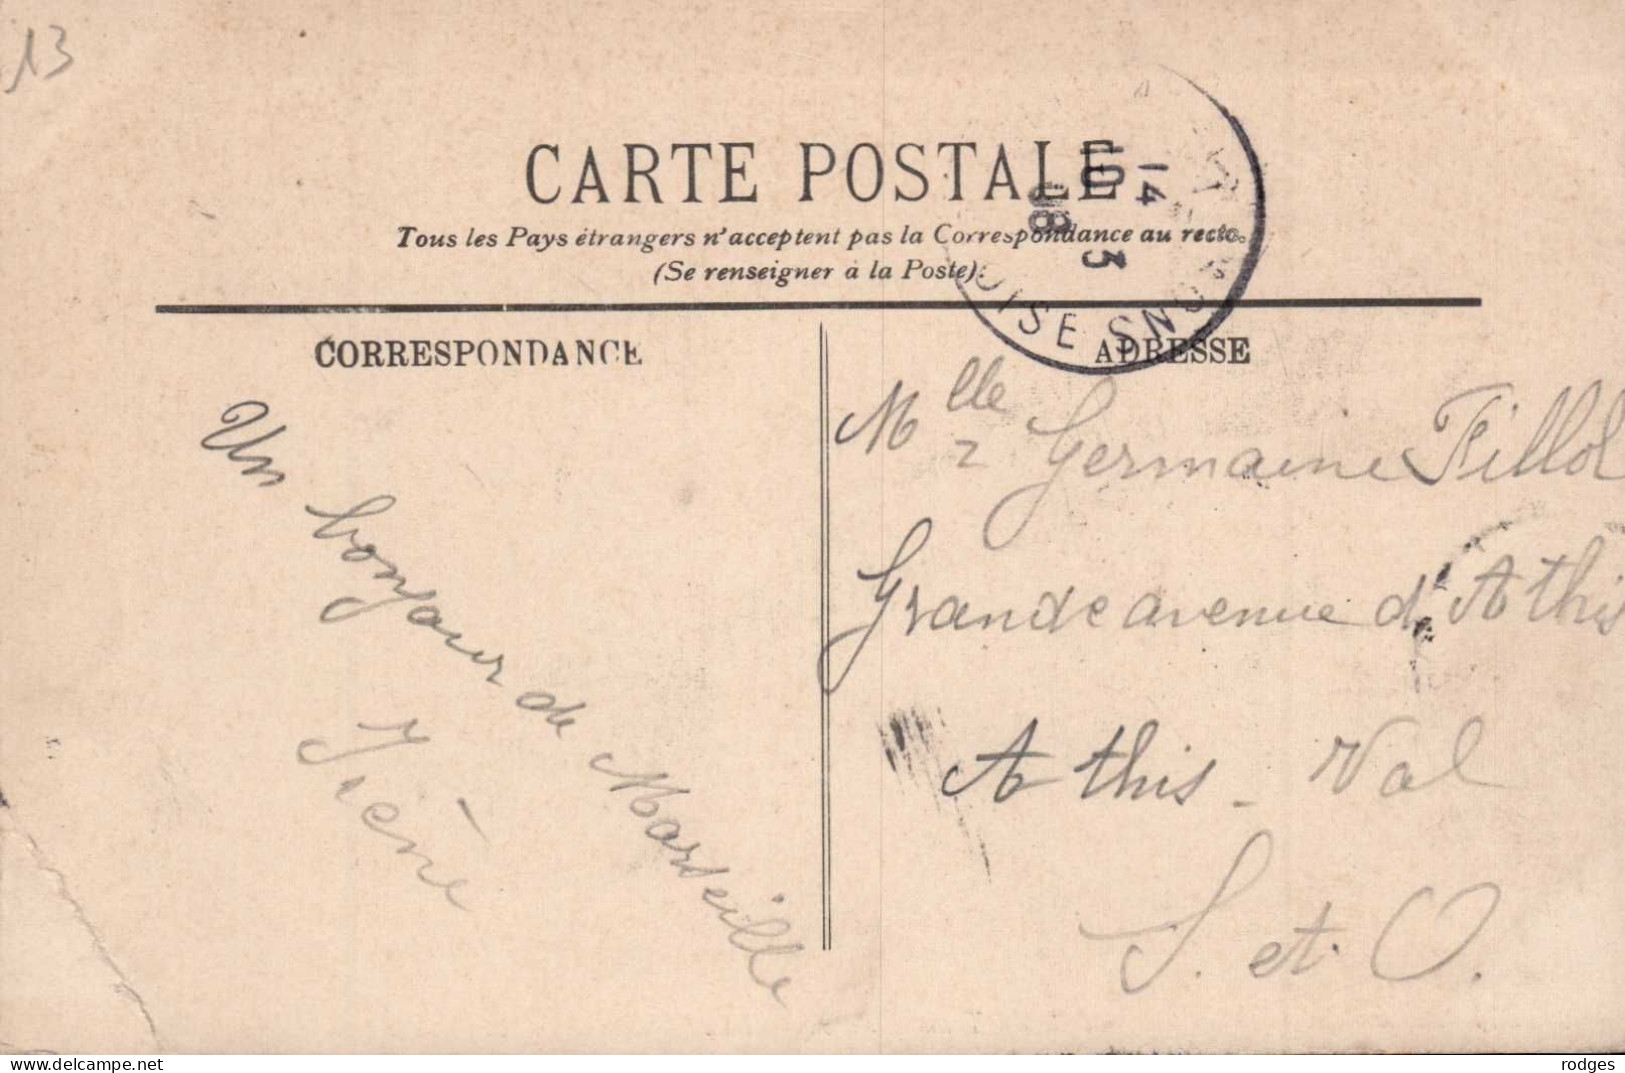 13
CARTE POSTALE
Tous les Pays étrangers n'acceptent pas la Correspondance au recto.
(Se renseigner à la Poste).
14
10
3
08
OISE
CORRESPONDANCE
ADRESSE
Un bonjour de Marseille
Irène
Mlle Germaine Fillol
Grande avenue d'Athis
Athis-Val
S. et O.
delcampe.net
rodges